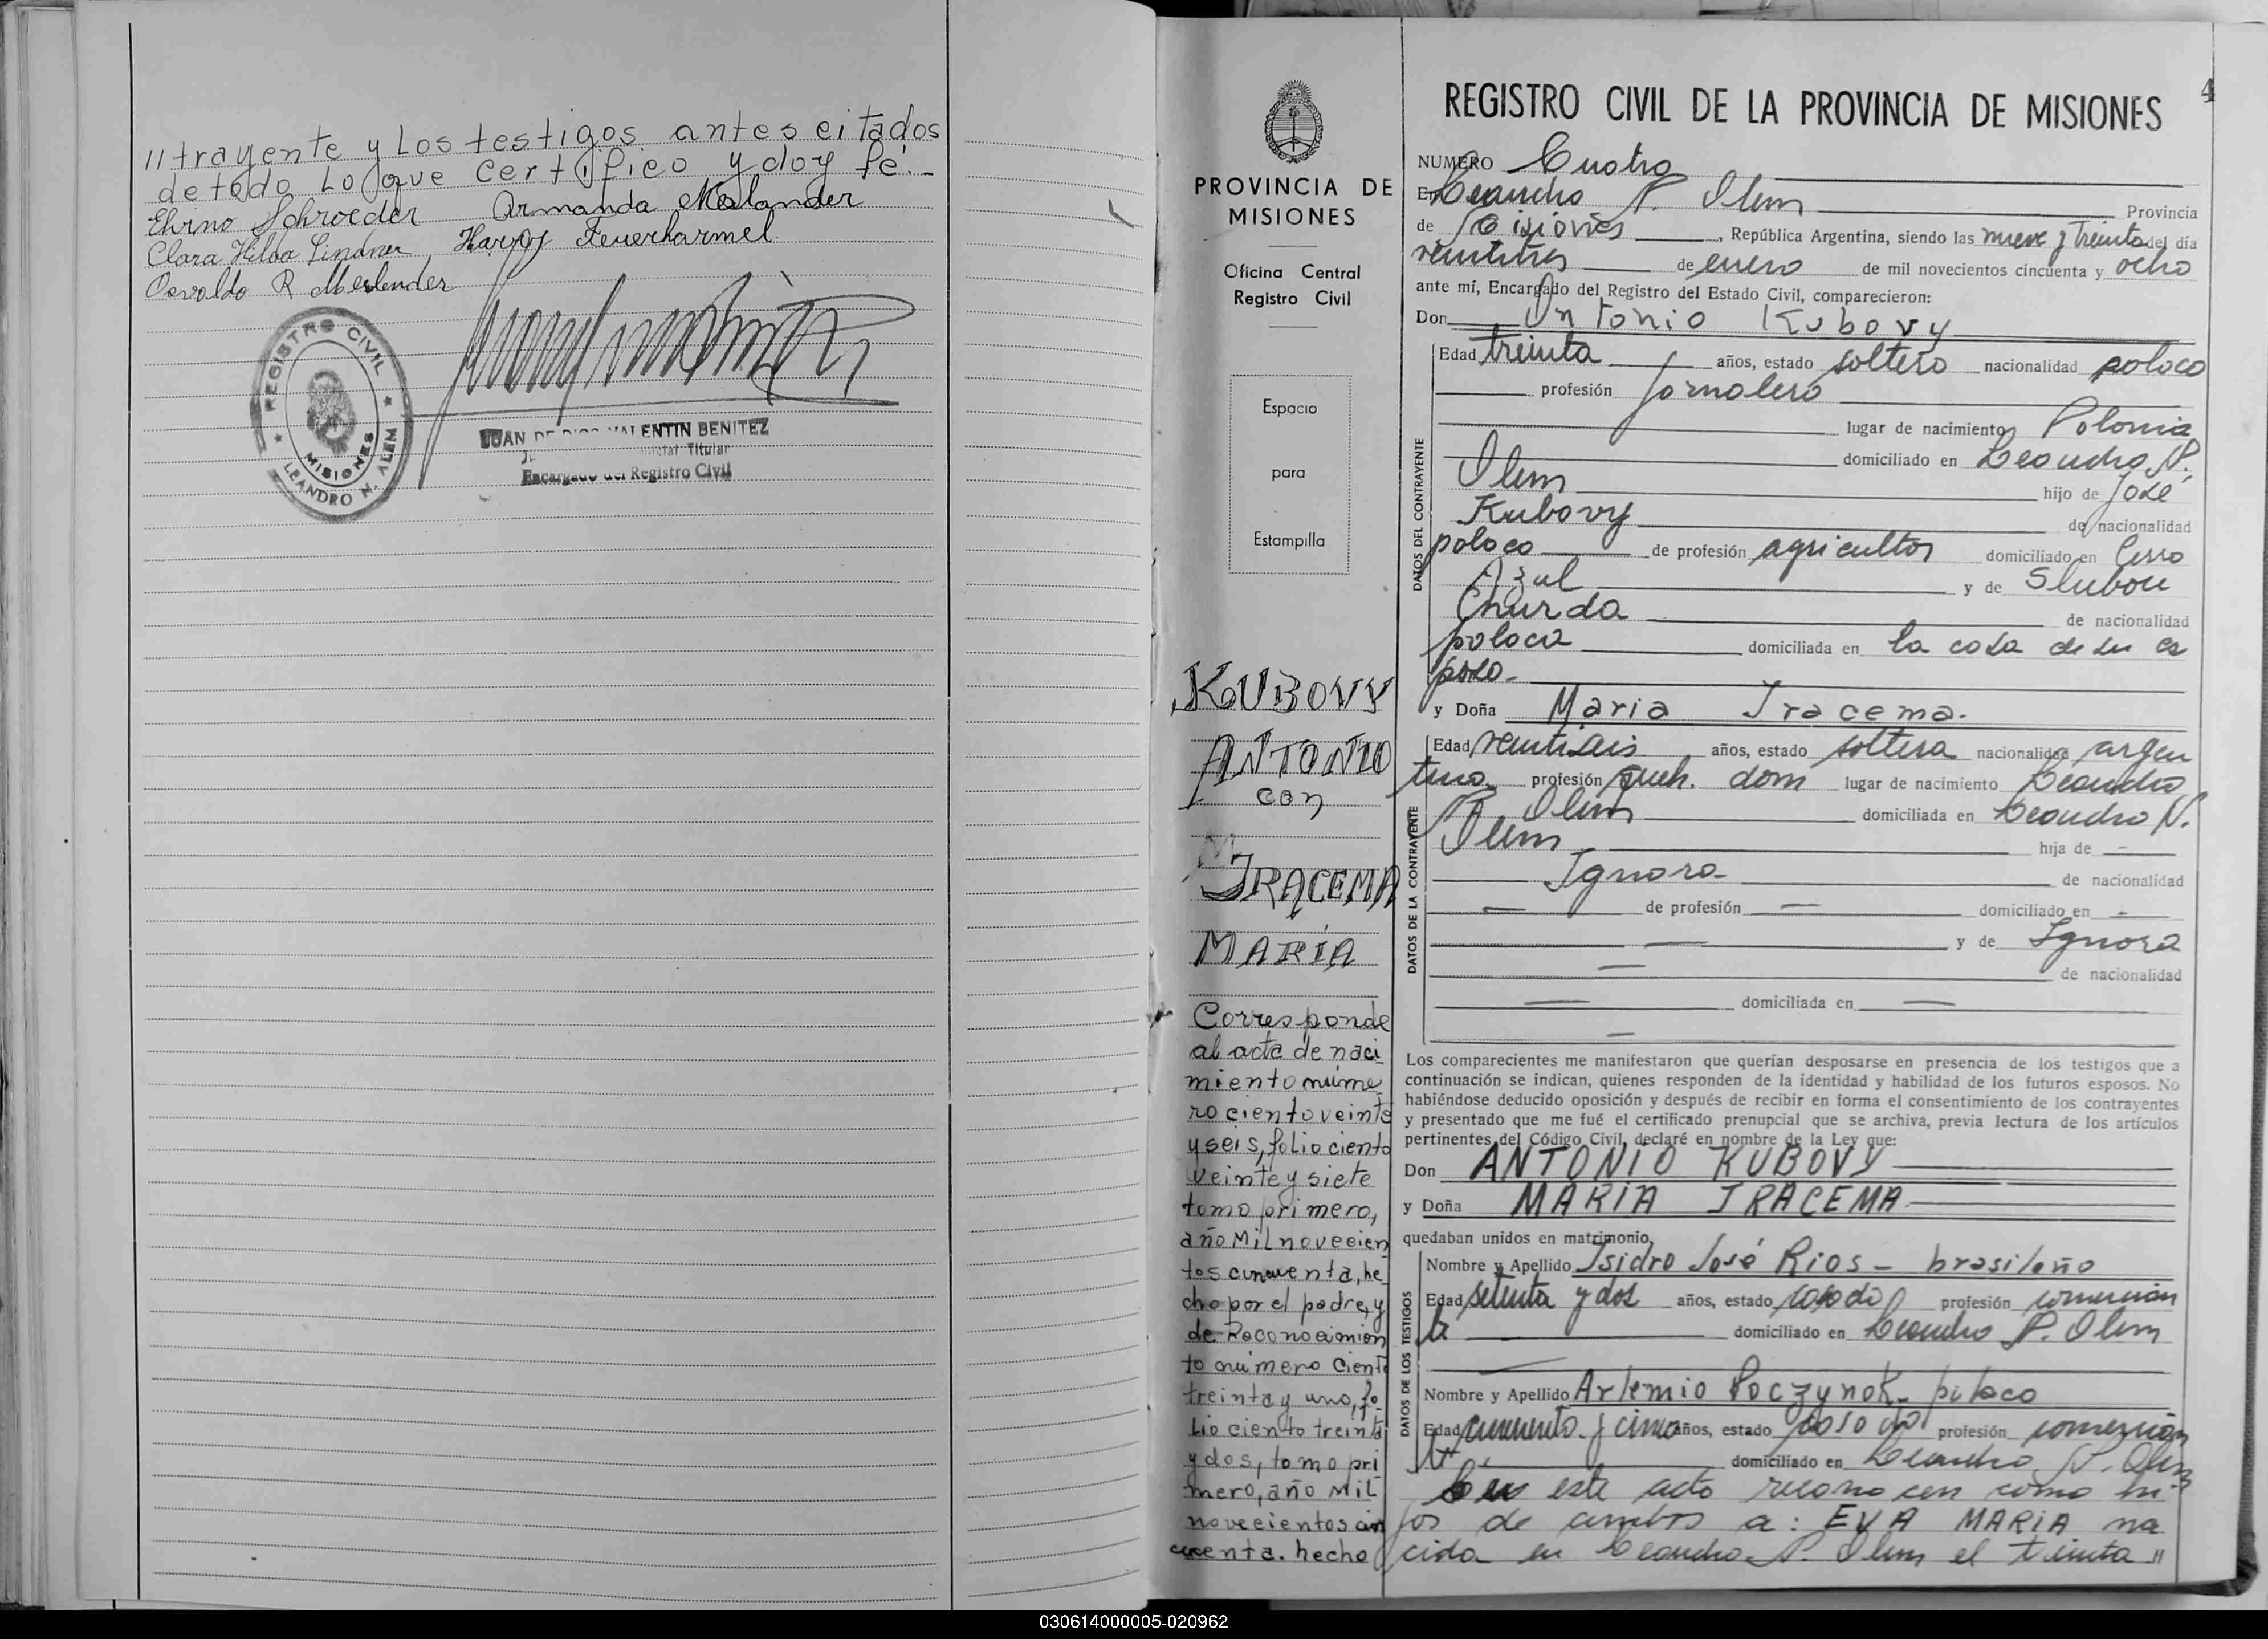 //trayente y Los testigos antes citados
de todo Lo que certifico y doy fé.-
Ehrno Schroeder Armanda Merlander
Clara Hilda Lindner Harry Feuerharmel
Osvaldo R Merlender
REGISTRO CIVIL
MISIONES
LEANDRO N. ALEM
JUAN DE DIOS VALENTIN BENITEZ
Titular
Encargado del Registro Civil
4
REGISTRO CIVIL DE LA PROVINCIA DE MISIONES
PROVINCIA DE
MISIONES
Oficina Central
Registro Civil
Espacio
para
Estampilla
KUBOVY
ANTONIO
con
IRACEMA
MARÍA
Corresponde
al acta de naci
miento núme
ro ciento veinte
y seis, folio ciento
veinte y siete
tomo primero,
año Mil novecien
tos cincuenta, he
cho por el padre, y
de Reconocimien
to número ciento
treinta y uno, fo-
Lio ciento treinta
y dos, tomo pri
mero, año Mil
novecientos cin
cuenta. hecho
NUMERO Cuatro
En Leandro N. Alem Provincia
de Misiones, República Argentina, siendo las nueve y treinta del día
veintitres de enero de mil novecientos cincuenta y ocho
ante mí, Encargado del Registro del Estado Civil, comparecieron:
Don Antonio Kubovy
DATOS DEL CONTRAYENTE
Edad treinta años, estado soltero nacionalidad polaco
profesión jornalero
lugar de nacimiento Polonia
domiciliado en Leandro N.
Alem hijo de José
Kubovy de nacionalidad
polaco de profesión agricultor domiciliado en Cerro
Azul y de Slubou
Churda de nacionalidad
polaca domiciliada en la casa de su es
poso.-
y Doña Maria Iracema.
DATOS DE LA CONTRAYENTE
Edad veintiseis años, estado soltera nacionalidad argen
tina. profesión queh. dom lugar de nacimiento Leandro
N. Alem domiciliada en Leandro N.
Alem hija de —
Ignora de nacionalidad
— de profesión — domiciliado en —
— y de Ignora
— de nacionalidad
— domiciliada en —
—
Los comparecientes me manifestaron que querían desposarse en presencia de los testigos que a
continuación se indican, quienes responden de la identidad y habilidad de los futuros esposos. No
habiéndose deducido oposición y después de recibir en forma el consentimiento de los contrayentes
y presentado que me fué el certificado prenupcial que se archiva, previa lectura de los artículos
pertinentes del Código Civil, declaré en nombre de la Ley que:
Don ANTONIO KUBOVY
y Doña MARIA IRACEMA
quedaban unidos en matrimonio
DATOS DE LOS TESTIGOS
Nombre y Apellido Isidro José Rios - brasileño
Edad setenta y dos años, estado casado profesión comercian
te domiciliado en Leandro N. Alem
Nombre y Apellido Artemio Poczynok - polaco
Edad cincuenta y cinco años, estado casado profesión comercian
te. domiciliado en Leandro N. Alem
En este acto reconocen como hi-
jos de ambos a: EVA MARIA na
cida en Leandro N. Alem el treinta //
030614000005-020962